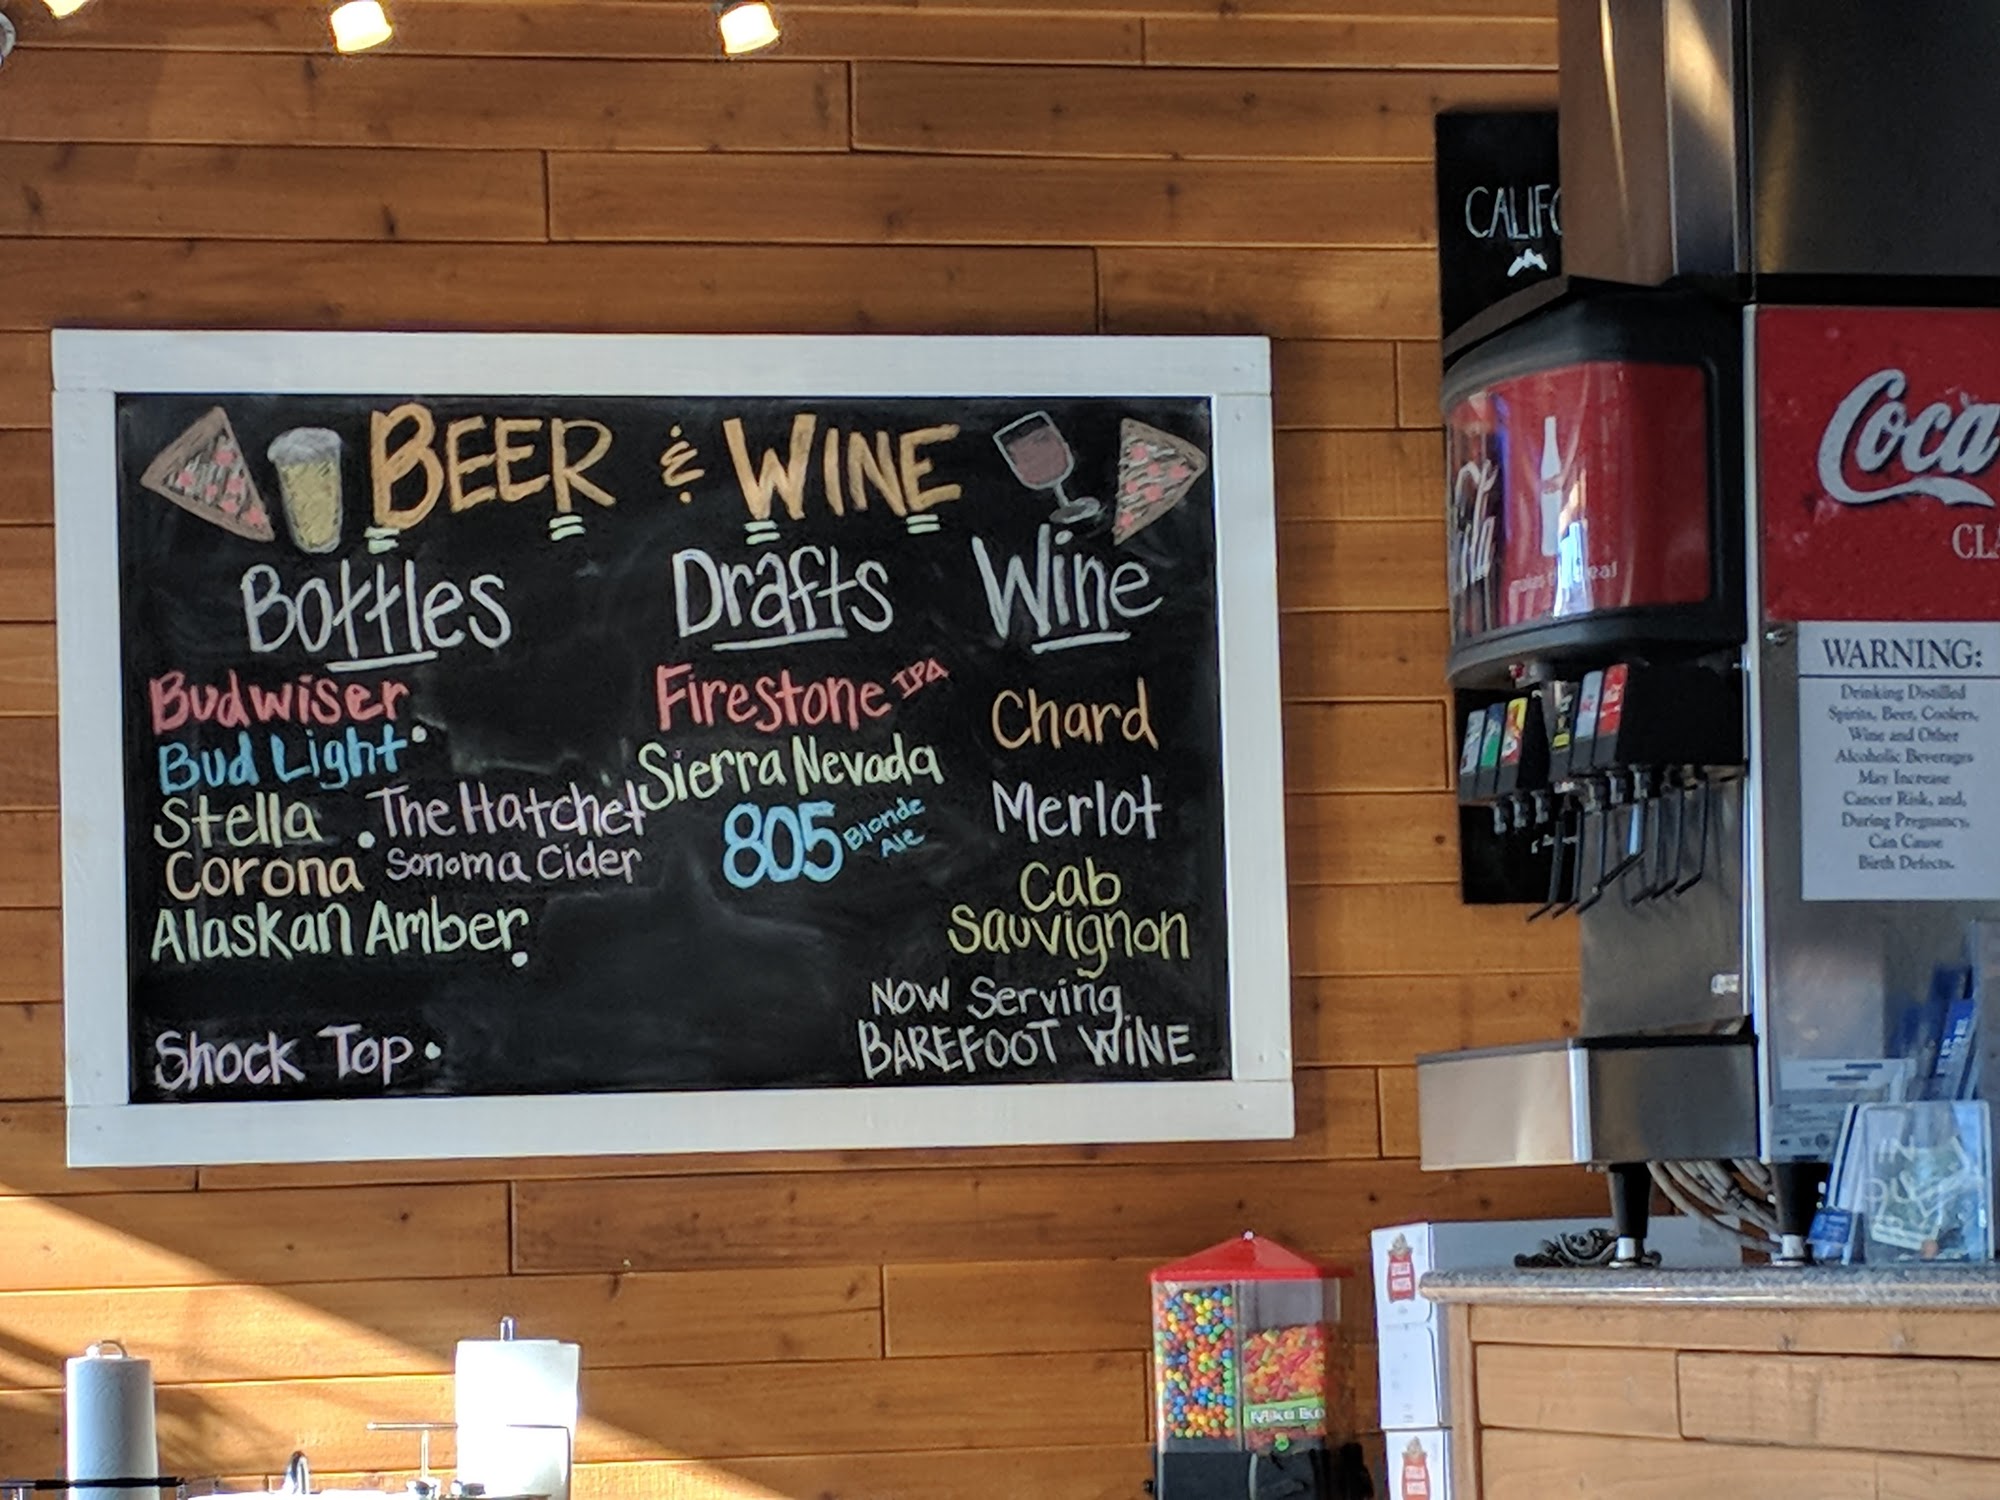 BEER & WINE
Bottles
Budwiser
Bud Light
Stella
Corona
Alaskan Amber
Shock Top
The Hatchet
Sonoma Cider
Drafts
Firestone IPA
Sierra Nevada
805 Blonde
Ale
Wine
Chard
Merlot
Cab
Sauvignon
NOW Serving
BAREFOOT WINE
CALIFO
Coca
CLA
WARNING:
Drinking Distilled
Spirits, Beer, Coolers,
Wine and Other
Alcoholic Beverages
May Increase
Cancer Risk, and,
During Pregnancy,
Can Cause
Birth Defects.